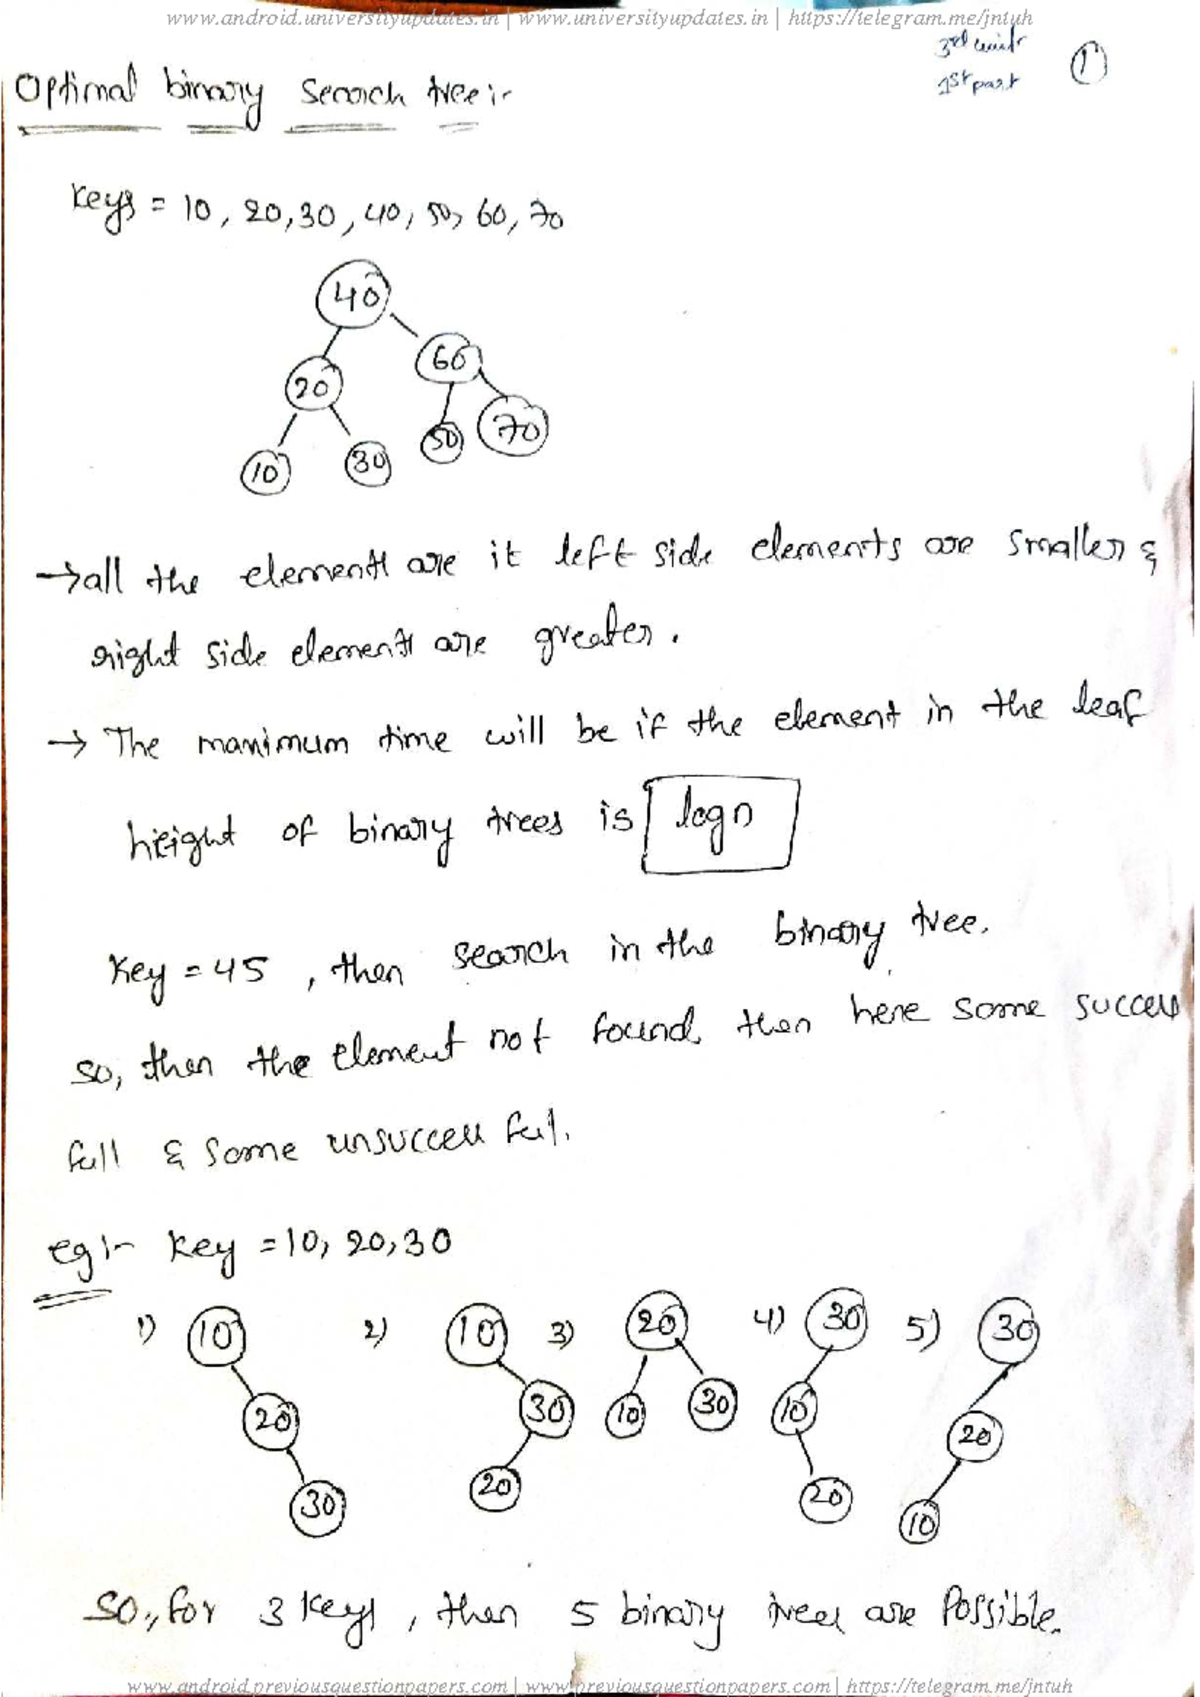 www.android.universityupdates.in | www.universityupdates.in | https://telegram.me/jntuh
3rd unit
1st part
1
Optimal binary Search tree:-
Keys = 10, 20, 30, 40, 50, 60, 70
40
60
20
50 70
10 30
→ all the elements are it left side elements are smaller &
right side elements are greater.
→ The maximum time will be if the element in the leaf
height of binary trees is logn
Key = 45, then search in the binary tree.
So, then the element not found, then here some success
full & some unsuccessful.
eg:- Key = 10, 20, 30
1) 10 2) 10 3) 20 4) 30 5) 30
20 30 10 30 10 20
30 20 20 10
So, for 3 keys, then 5 binary trees are Possible.
www.android.previousquestionpapers.com | www.previousquestionpapers.com | https://telegram.me/jntuh